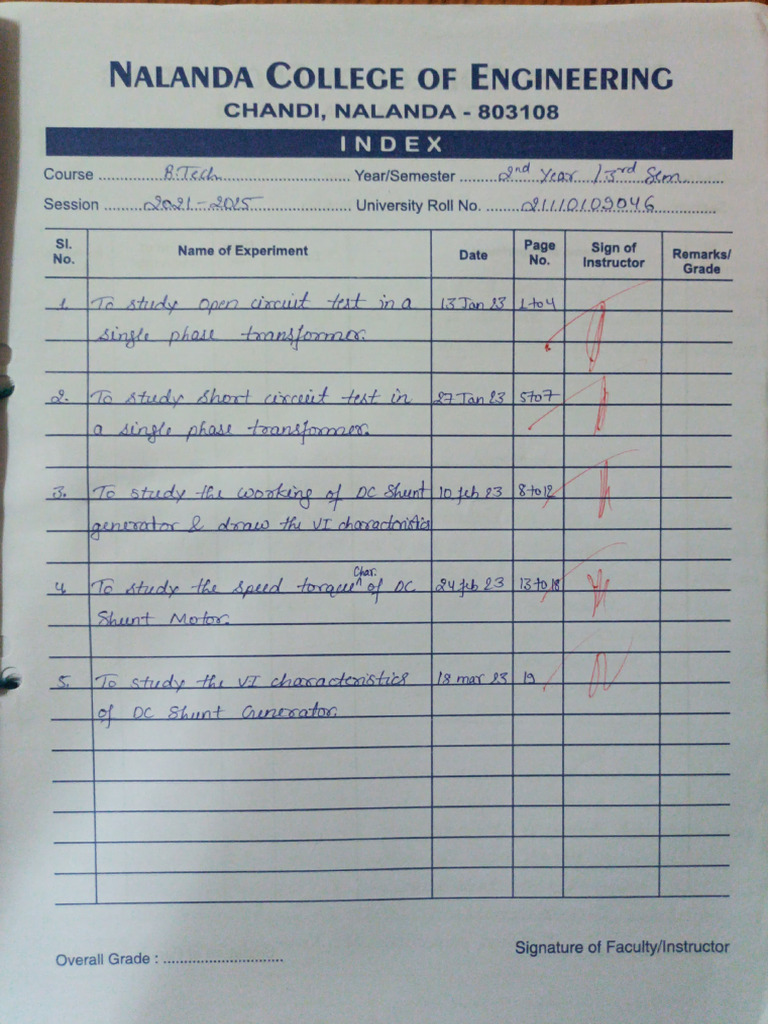 NALANDA COLLEGE OF ENGINEERING
CHANDI, NALANDA - 803108
INDEX
Course B.Tech Year/Semester 2nd Year / 3rd Sem
Session 2021-2025 University Roll No. 21110109046
Sl. No. Name of Experiment Date Page No. Sign of Instructor Remarks/ Grade
1. To study open circuit test in a 13 Jan 23 1 to 4
single phase transformer.
2. To study short circuit test in 27 Jan 23 5 to 7
a single phase transformer.
3. To study the working of DC Shunt 10 feb 23 8 to 12
generator & draw the VI characteristics
4. To study the speed torque Char. of DC 24 feb 23 13 to 18
Shunt Motor.
5. To study the VI characteristics 18 mar 23 19
of DC Shunt Generator.
Overall Grade : Signature of Faculty/Instructor